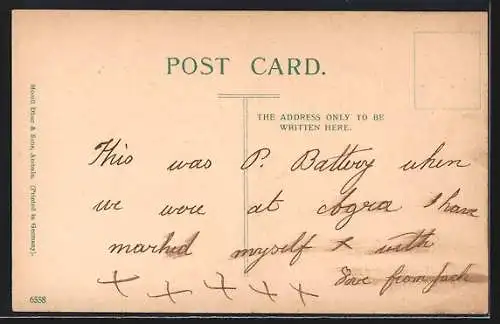 POST CARD.
THE ADDRESS ONLY TO BE
WRITTEN HERE.
This was P. Battery when
we were at Agra I have
marked myself x with
Love from Jack
x x x x x
Moorli Dhur & Sons, Ambala. (Printed in Germany).
6558